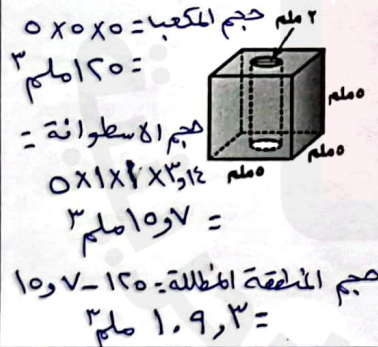 حجم المكعب = ٥ × ٥ × ٥
= ١٢٥ ملم ٣
٢ ملم
٥ ملم
٥ ملم
٥ ملم
حجم الاسطوانة =
٣,١٤ × ١ × ١ × ٥
= ١٥,٧ ملم ٣
حجم المنطقة المظللة = ١٢٥ - ١٥,٧
= ١٠٩,٣ ملم ٣